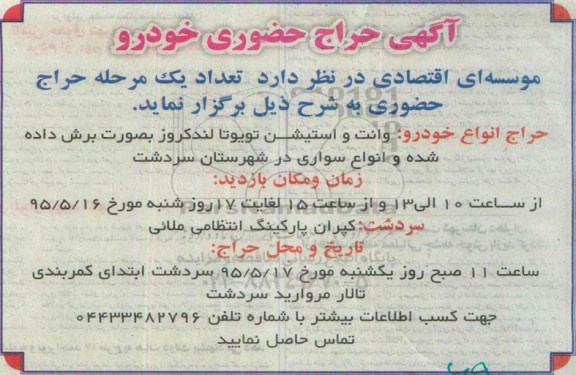 آگهی حراج حضوری خودرو
موسسه‌ای اقتصادی در نظر دارد تعداد یک مرحله حراج
حضوری به شرح ذیل برگزار نماید.
حراج انواع خودرو: وانت و استیشن تویوتا لندکروز بصورت برش داده
شده و انواع سواری در شهرستان سردشت
زمان ومکان بازدید:
از ساعت ۱۰ الی۱۳ و از ساعت ۱۵ لغایت ۱۷روز شنبه مورخ ۹۵/۵/۱۶
سردشت:کپران پارکینگ انتظامی ملائی
تاریخ و محل حراج:
ساعت ۱۱ صبح روز یکشنبه مورخ ۹۵/۵/۱۷ سردشت ابتدای کمربندی
تالار مروارید سردشت
جهت کسب اطلاعات بیشتر با شماره تلفن ۰۴۴۳۳۴۸۲۷۹۶
تماس حاصل نمایید